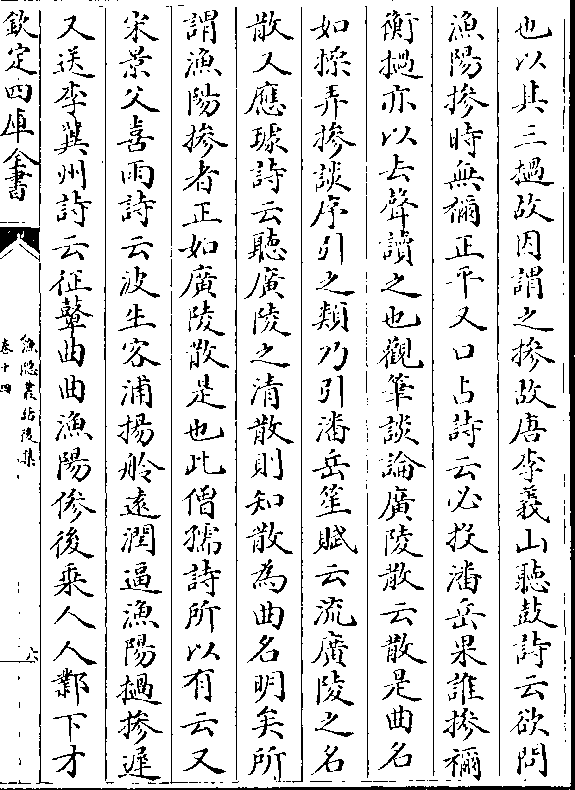 也以其三撾故因謂之摻故唐李義山聽鼓詩云欲問
漁陽摻時無禰正平又口占詩云必投潘岳果誰摻禰
衡撾亦以去聲讀之也觀筆談論廣陵散云散是曲名
如操弄摻談序引之類乃引潘岳笙賦云流廣陵之名
散又應璩詩云聽廣陵之清散則知散為曲名明矣所
謂漁陽摻者正如廣陵散是也此僧孺詩所以有云又
宋景文喜雨詩云波生客浦揚舲遠潤逼漁陽撾摻遲
又送李冀州詩云征鼙曲曲漁陽慘後乘人人鄴下才
欽定四庫全書
漁隱叢話後集
卷十四
六